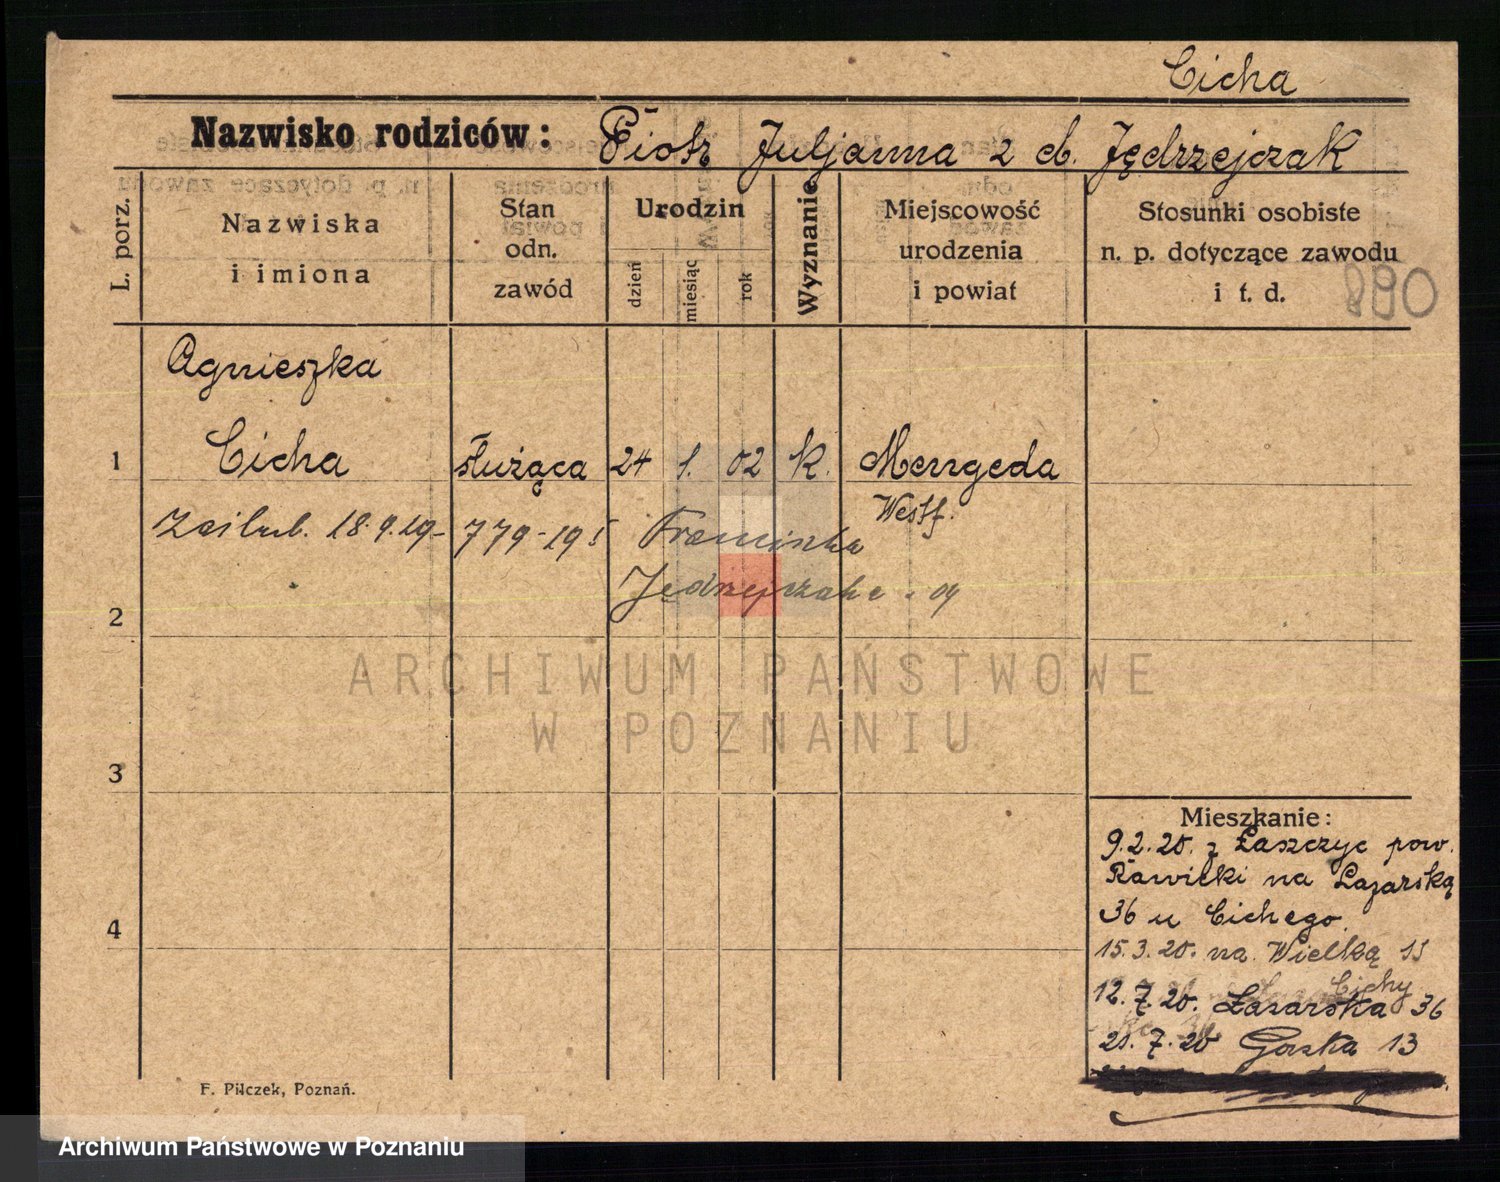 Cicha
Nazwisko rodziców: Piotr Juljanna 2 d. Jędrzejczak
L. porz.
Nazwiska
i imiona
Stan
odn.
zawód
Urodzin
dzień
miesiąc
rok
Wyznanie
Miejscowość
urodzenia
i powiat
Stosunki osobiste
n. p. dotyczące zawodu
i t. d.
890
Agnieszka
1 Cicha służąca 24 1. 02 k. Mengeda
Westf.
18.9.19- 779-19
2
3
4
Mieszkanie:
9.2.20. z Łaszczyc pow.
Rawicki na Łazarską
36 u Cichego.
15.3.20. na Wielką 11
Cichy
12.7.20. Łazarska 36
21.7.20 Górka 13
F. Pilczek, Poznań.
ARCHIWUM PAŃSTWOWE
W POZNANIU
Archiwum Państwowe w Poznaniu